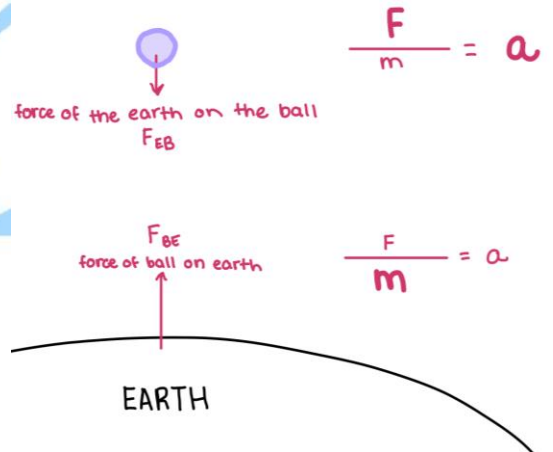 F
m = a
force of the earth on the ball
FEB
FBE
force of ball on earth
F
m = a
EARTH